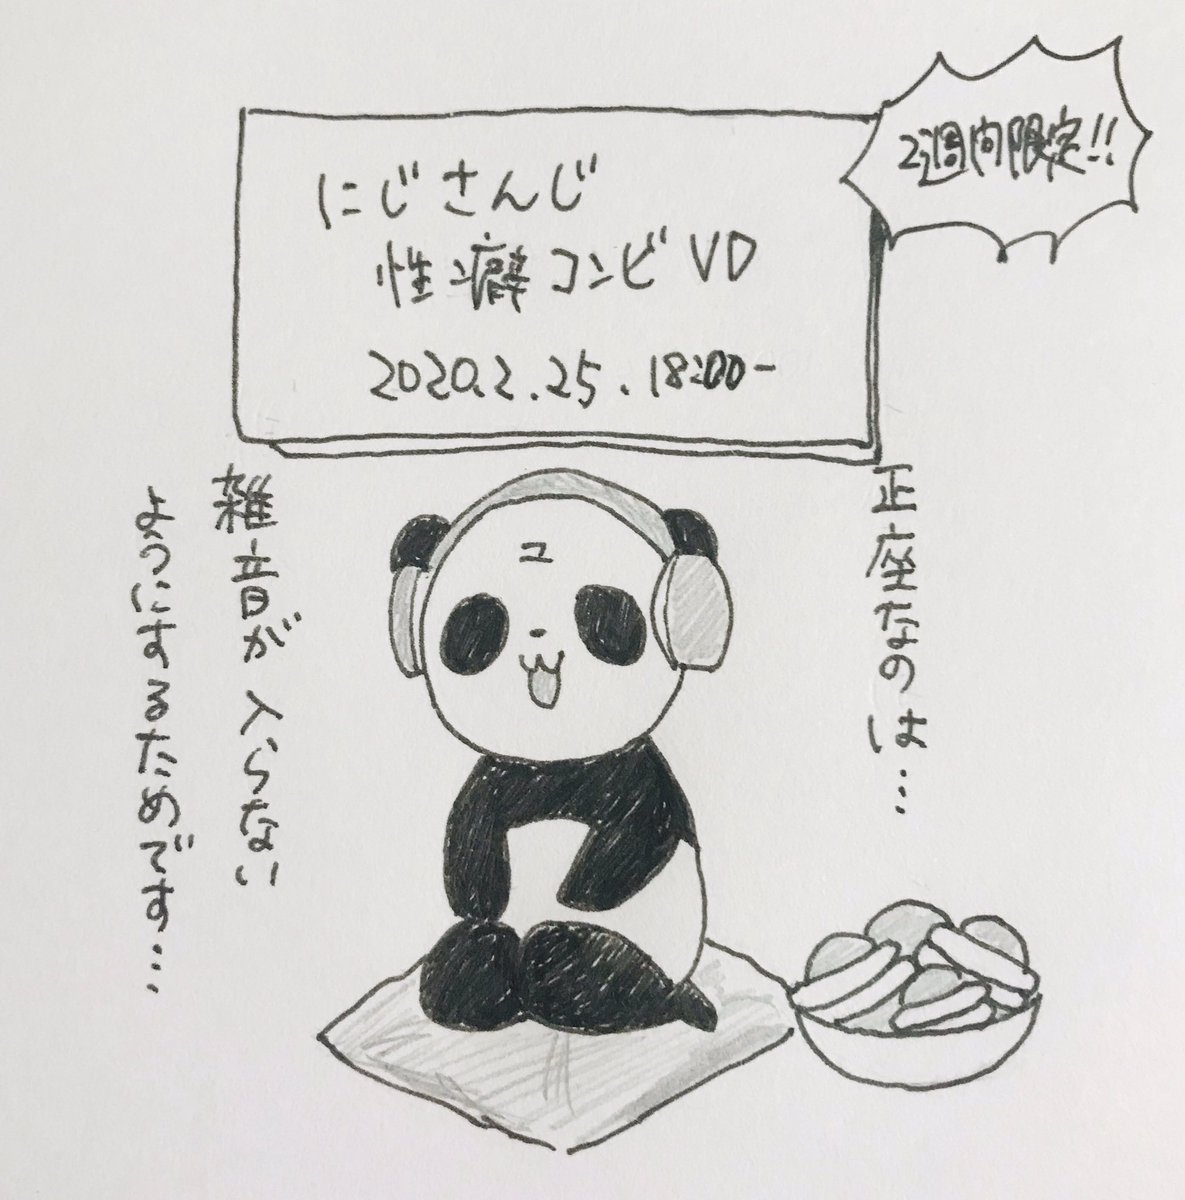 2週間限定!!
にじさんじ
性癖コンビVD
2020.2.25.18:00-
正座なのは…
雑音が入らない
ようにするためです…
ユ